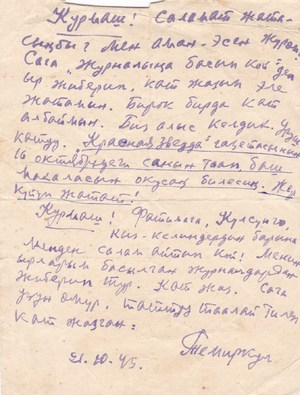 Курмаш! Саламат жата-
сыңбы? Мен аман-эсен журөм.
Сага „Журналыңа басып кой" деп
ыр жиберип, кат жазып эле
жатамын. Бирок бирда кат
албаймын. Биз алыс келдик.
катуу. „Красная Звезда" газетасынын
16 октябрдеги санын таап баш
макаласын окусаң билесиң. Жең
күтүп жатат!
Курмаш! Фатимага, Кулсунга,
кыз-келиндердин барына
менден салам айтып кой! Менин
ырларым басылган журналдардан
жиберип тур. Кат жаз. Сага
узун өмүр, таттуу таалай тилеп
кат жазган:
Темиркул
21.10.45.